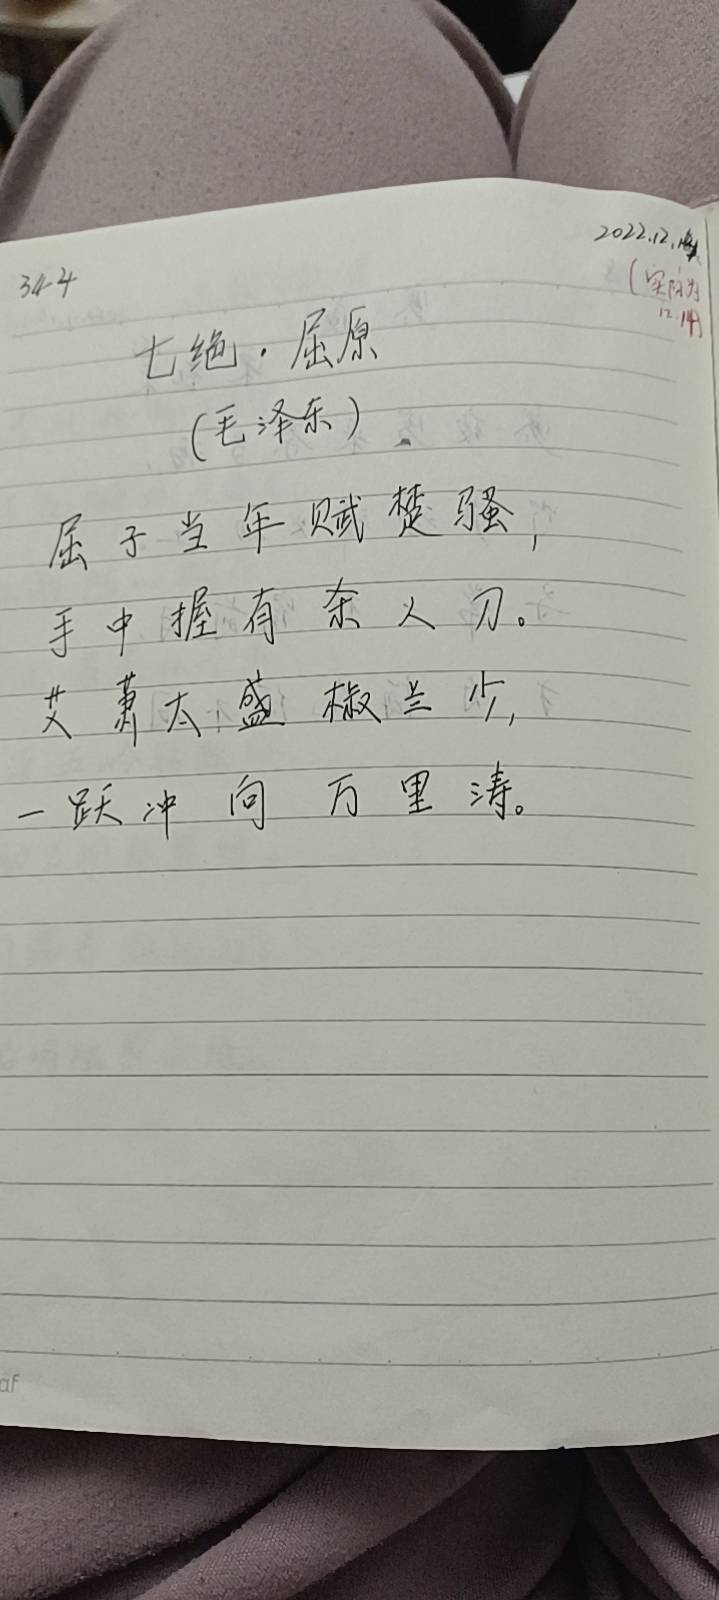 34-4
2022.12.
(实际为
12.14)
七绝·屈原
(毛泽东)
屈子当年赋楚骚,
手中握有杀人刀。
艾萧太盛椒兰少,
一跃冲向万里涛。
af